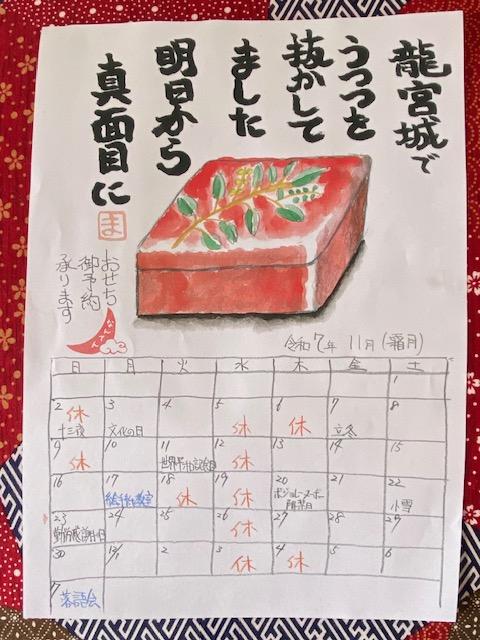 龍宮城で
うつつを
抜かして
ました
明日から
真面目に
ま
おせち
御予約
承ります
令和7年 11月(霜月)
日 月 火 水 木 金 土
1
2 休 3 4 5 休 6 休 7 8
十三夜 文化の日 立冬
9 休 10 11 12 休 13 14 15
16 17 18 休 19 休 20 21 22
絵手紙教室 ボジョレーヌーボー 小雪
解禁日
23 24 25 26 休 27 28 29
勤労感謝の日
30 12/1 2 3 休 4 休 5 6
7
落語会